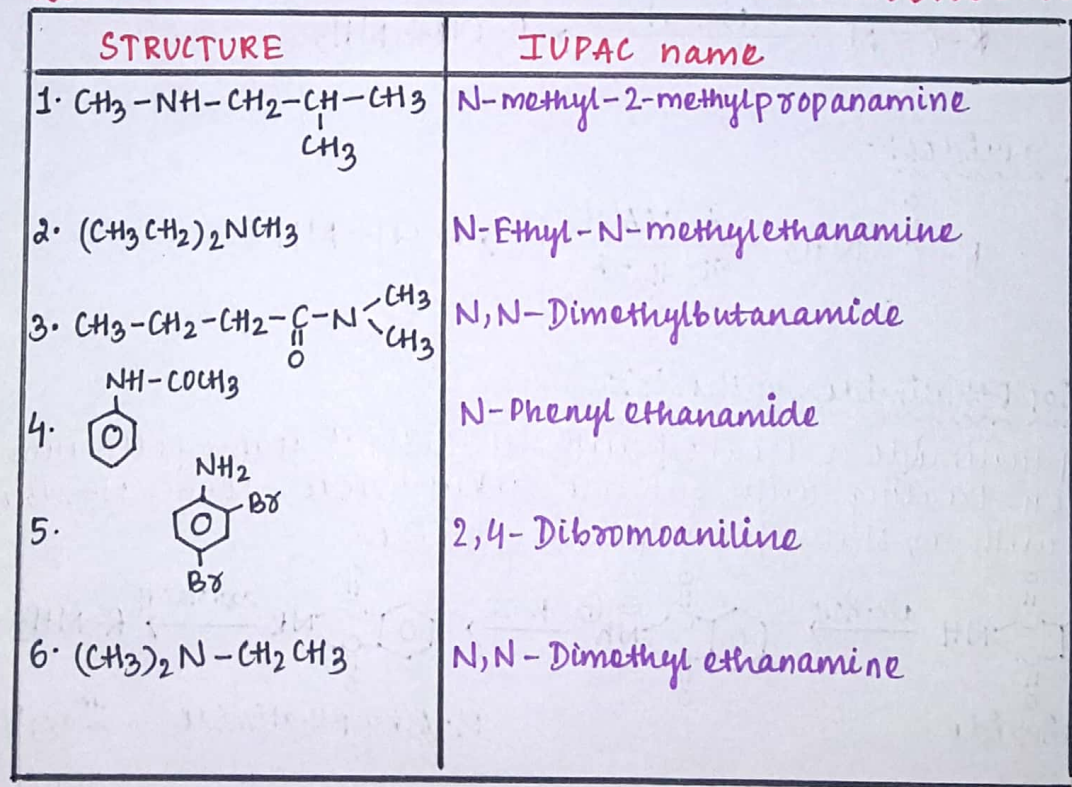 STRUCTURE IUPAC name
1. CH3-NH-CH2-CH-CH3 N-methyl-2-methylpropanamine
CH3
2. (CH3CH2)2NCH3 N-Ethyl-N-methylethanamine
CH3
3. CH3-CH2-CH2-C-N N,N-Dimethylbutanamide
CH3
O
NH-COCH3
4. N-Phenyl ethanamide
NH2
Br
5. 2,4-Dibromoaniline
Br
6. (CH3)2N-CH2CH3 N,N-Dimethyl ethanamine